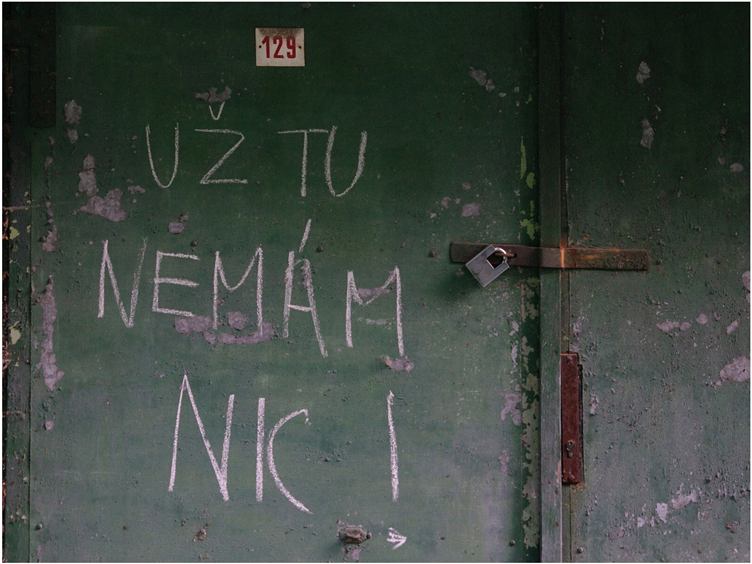 129
UŽ TU
NEMÁM
NIC !